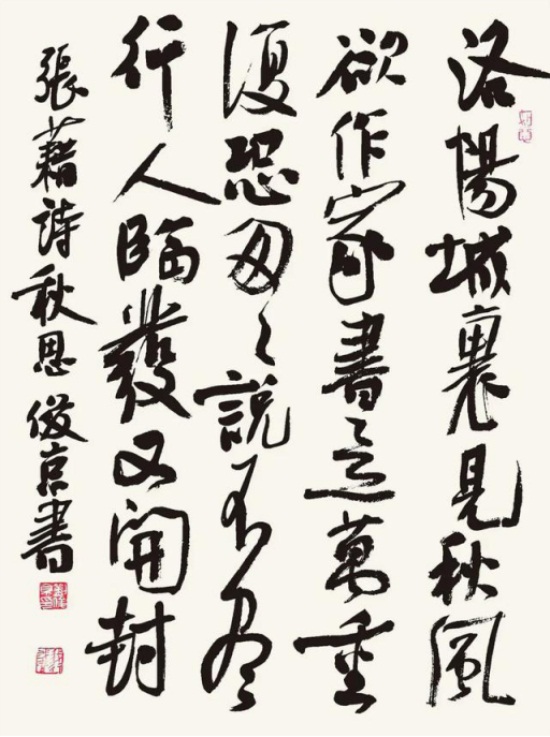 洛陽城裏見秋風
欲作家書意萬重
復恐匆々説不盡
行人臨發又開封
張藉詩秋思 俊京書